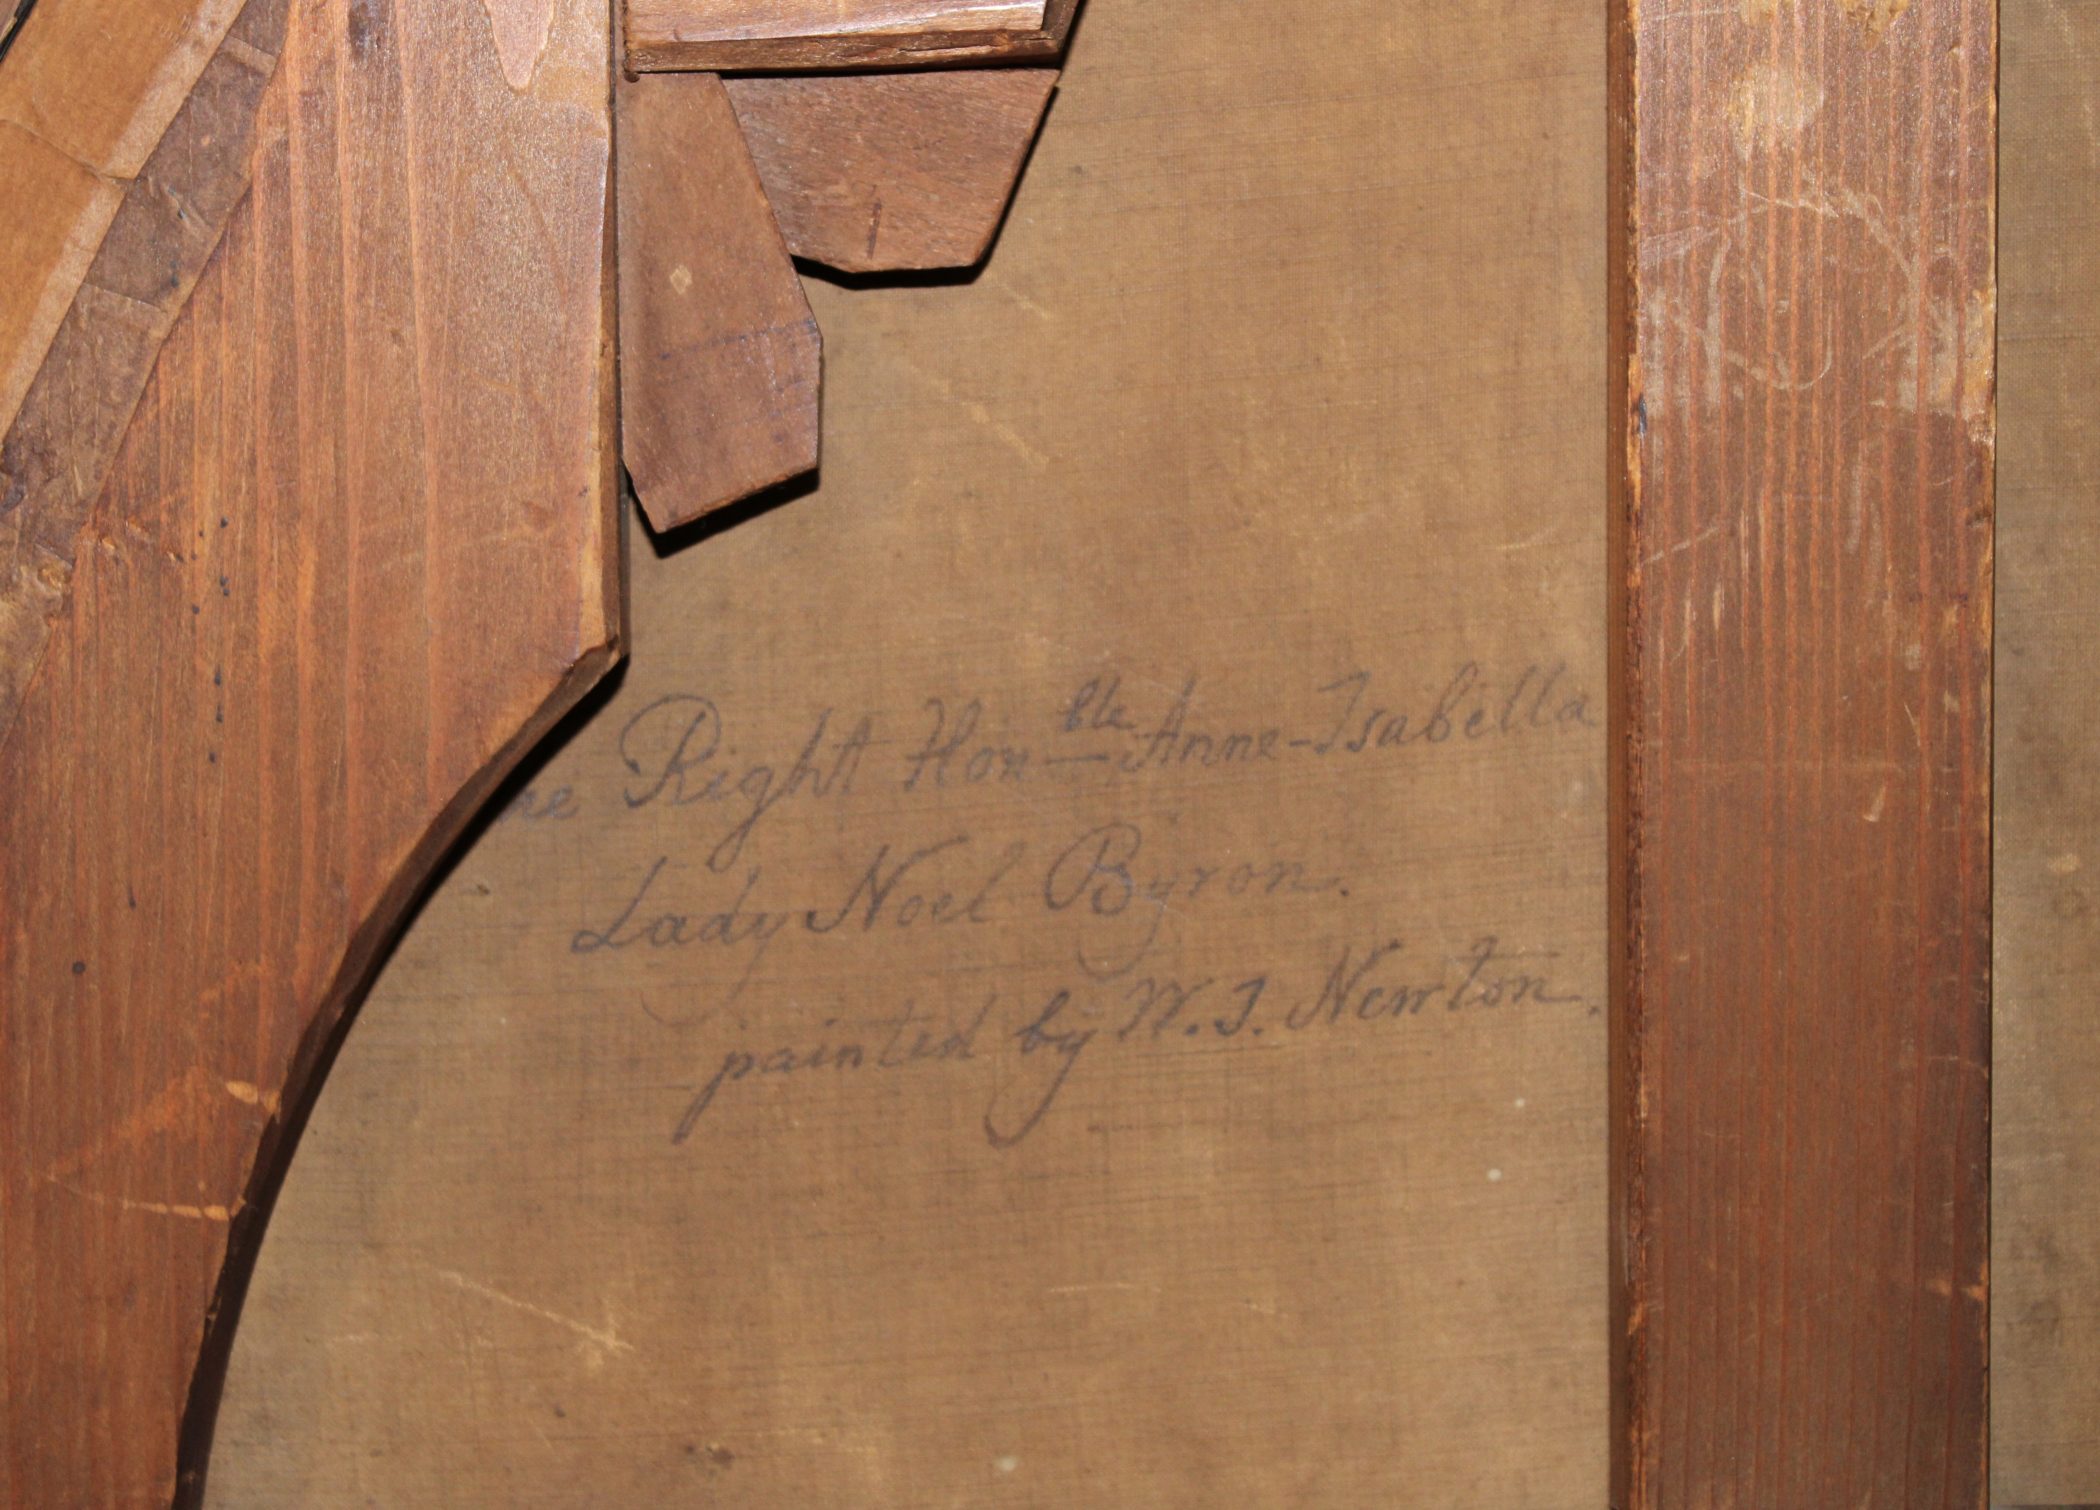 he Right Honble Anne-Isabella
Lady Noel Byron.
painted by W. J. Newton.